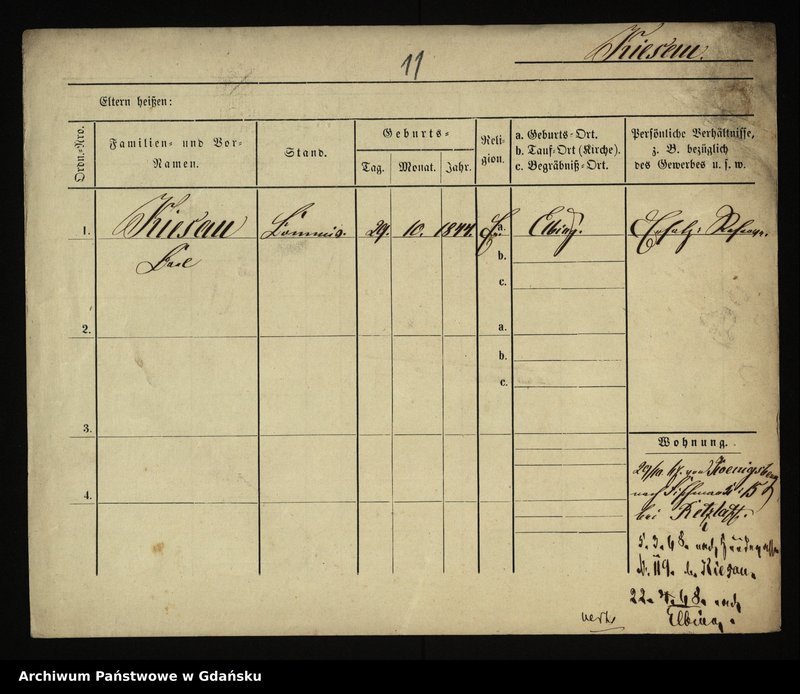 11
Kiesau.
Eltern heißen:
Ordn.-Nro.
Familien- und Vor-
Namen.
Stand.
Geburts-
Tag.
Monat.
Jahr.
Reli-
gion.
a. Geburts-Ort.
b. Tauf-Ort (Kirche).
c. Begräbniß-Ort.
Persönliche Verhältnisse,
z. B. bezüglich
des Gewerbes u. s. w.
1.
Kiesau
Commis.
29.
10.
1844.
Ev
a.
Elbing.
Ersatz-Reserve.
Carl
b.
c.
2.
a.
b.
c.
3.
4.
Wohnung.
29/10 67. von Koenigsberg
nach Fischmarkt 15
bei Retzlaff.
5. 3. 68. nach Hundegasse
N. 119. b. Kiesau.
22. 4. 68. nach
Elbing.
Archiwum Państwowe w Gdańsku